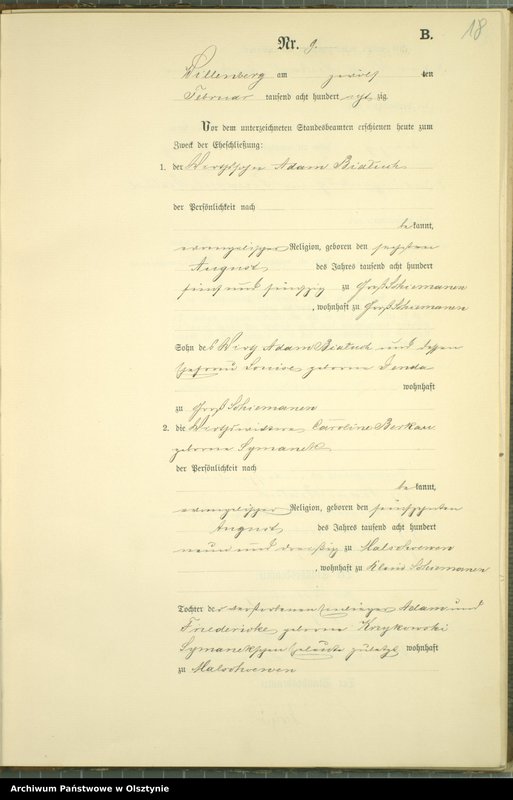 B.
18
Nr. 9.
Willenberg am zwölf ten
Februar tausend acht hundert achtzig
Vor dem unterzeichneten Standesbeamten erschienen heute zum
Zweck der Eheschließung:
1. der Wirthssohn Adam Bialuch
der Persönlichkeit nach
bekannt,
evangelischer Religion, geboren den sechsten
August des Jahres tausend acht hundert
fünf und fünfzig zu Groß Schiemanen
, wohnhaft zu Groß Schiemanen
Sohn des Wirth Adam Bialuch und dessen
Ehefrau Louise geborne Jenda
wohnhaft
zu Groß Schiemanen
2. die Wirthswittwe Caroline Berkau
geborne Symanek
der Persönlichkeit nach
bekannt,
evangelischer Religion, geboren den fünfzehnten
August des Jahres tausend acht hundert
neun und dreißig zu Malschoewen
, wohnhaft zu Klein Schiemanen
Tochter der verstorbenen Adam und
Friedericke geborne Krzykowski
Symanekschen Eheleute zuletzt wohnhaft
zu Malschoewen
Archiwum Państwowe w Olsztynie